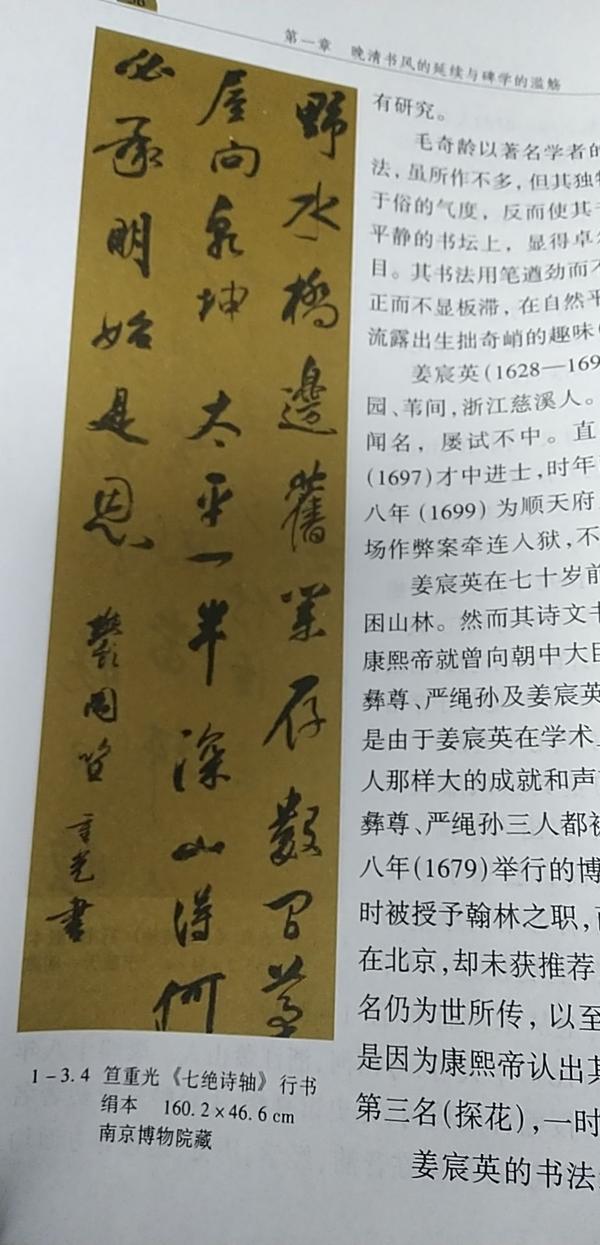 第一章 晚清书风的延续与碑学的滥觞
野水橋邊舊業存數間茅
屋向乾坤太平一半深山得何
必承明始是恩
鬱岡笪重光書
1-3.4 笪重光《七绝诗轴》行书
绢本 160.2×46.6cm
南京博物院藏
有研究。
毛奇龄以著名学者的
法，虽所作不多，但其独特
于俗的气度，反而使其书
平静的书坛上，显得卓尔
目。其书法用笔遒劲而不
正而不显板滞，在自然平
流露出生拙奇峭的趣味(
姜宸英(1628—169
园、苇间，浙江慈溪人。
闻名，屡试不中。直
(1697)才中进士，时年
八年(1699)为顺天府
场作弊案牵连入狱，不
姜宸英在七十岁前
困山林。然而其诗文书
康熙帝就曾向朝中大臣
彝尊、严绳孙及姜宸英
是由于姜宸英在学术上
人那样大的成就和声
彝尊、严绳孙三人都被
八年(1679)举行的博
时被授予翰林之职，而
在北京，却未获推荐
名仍为世所传，以至
是因为康熙帝认出其
第三名(探花)，一时
姜宸英的书法